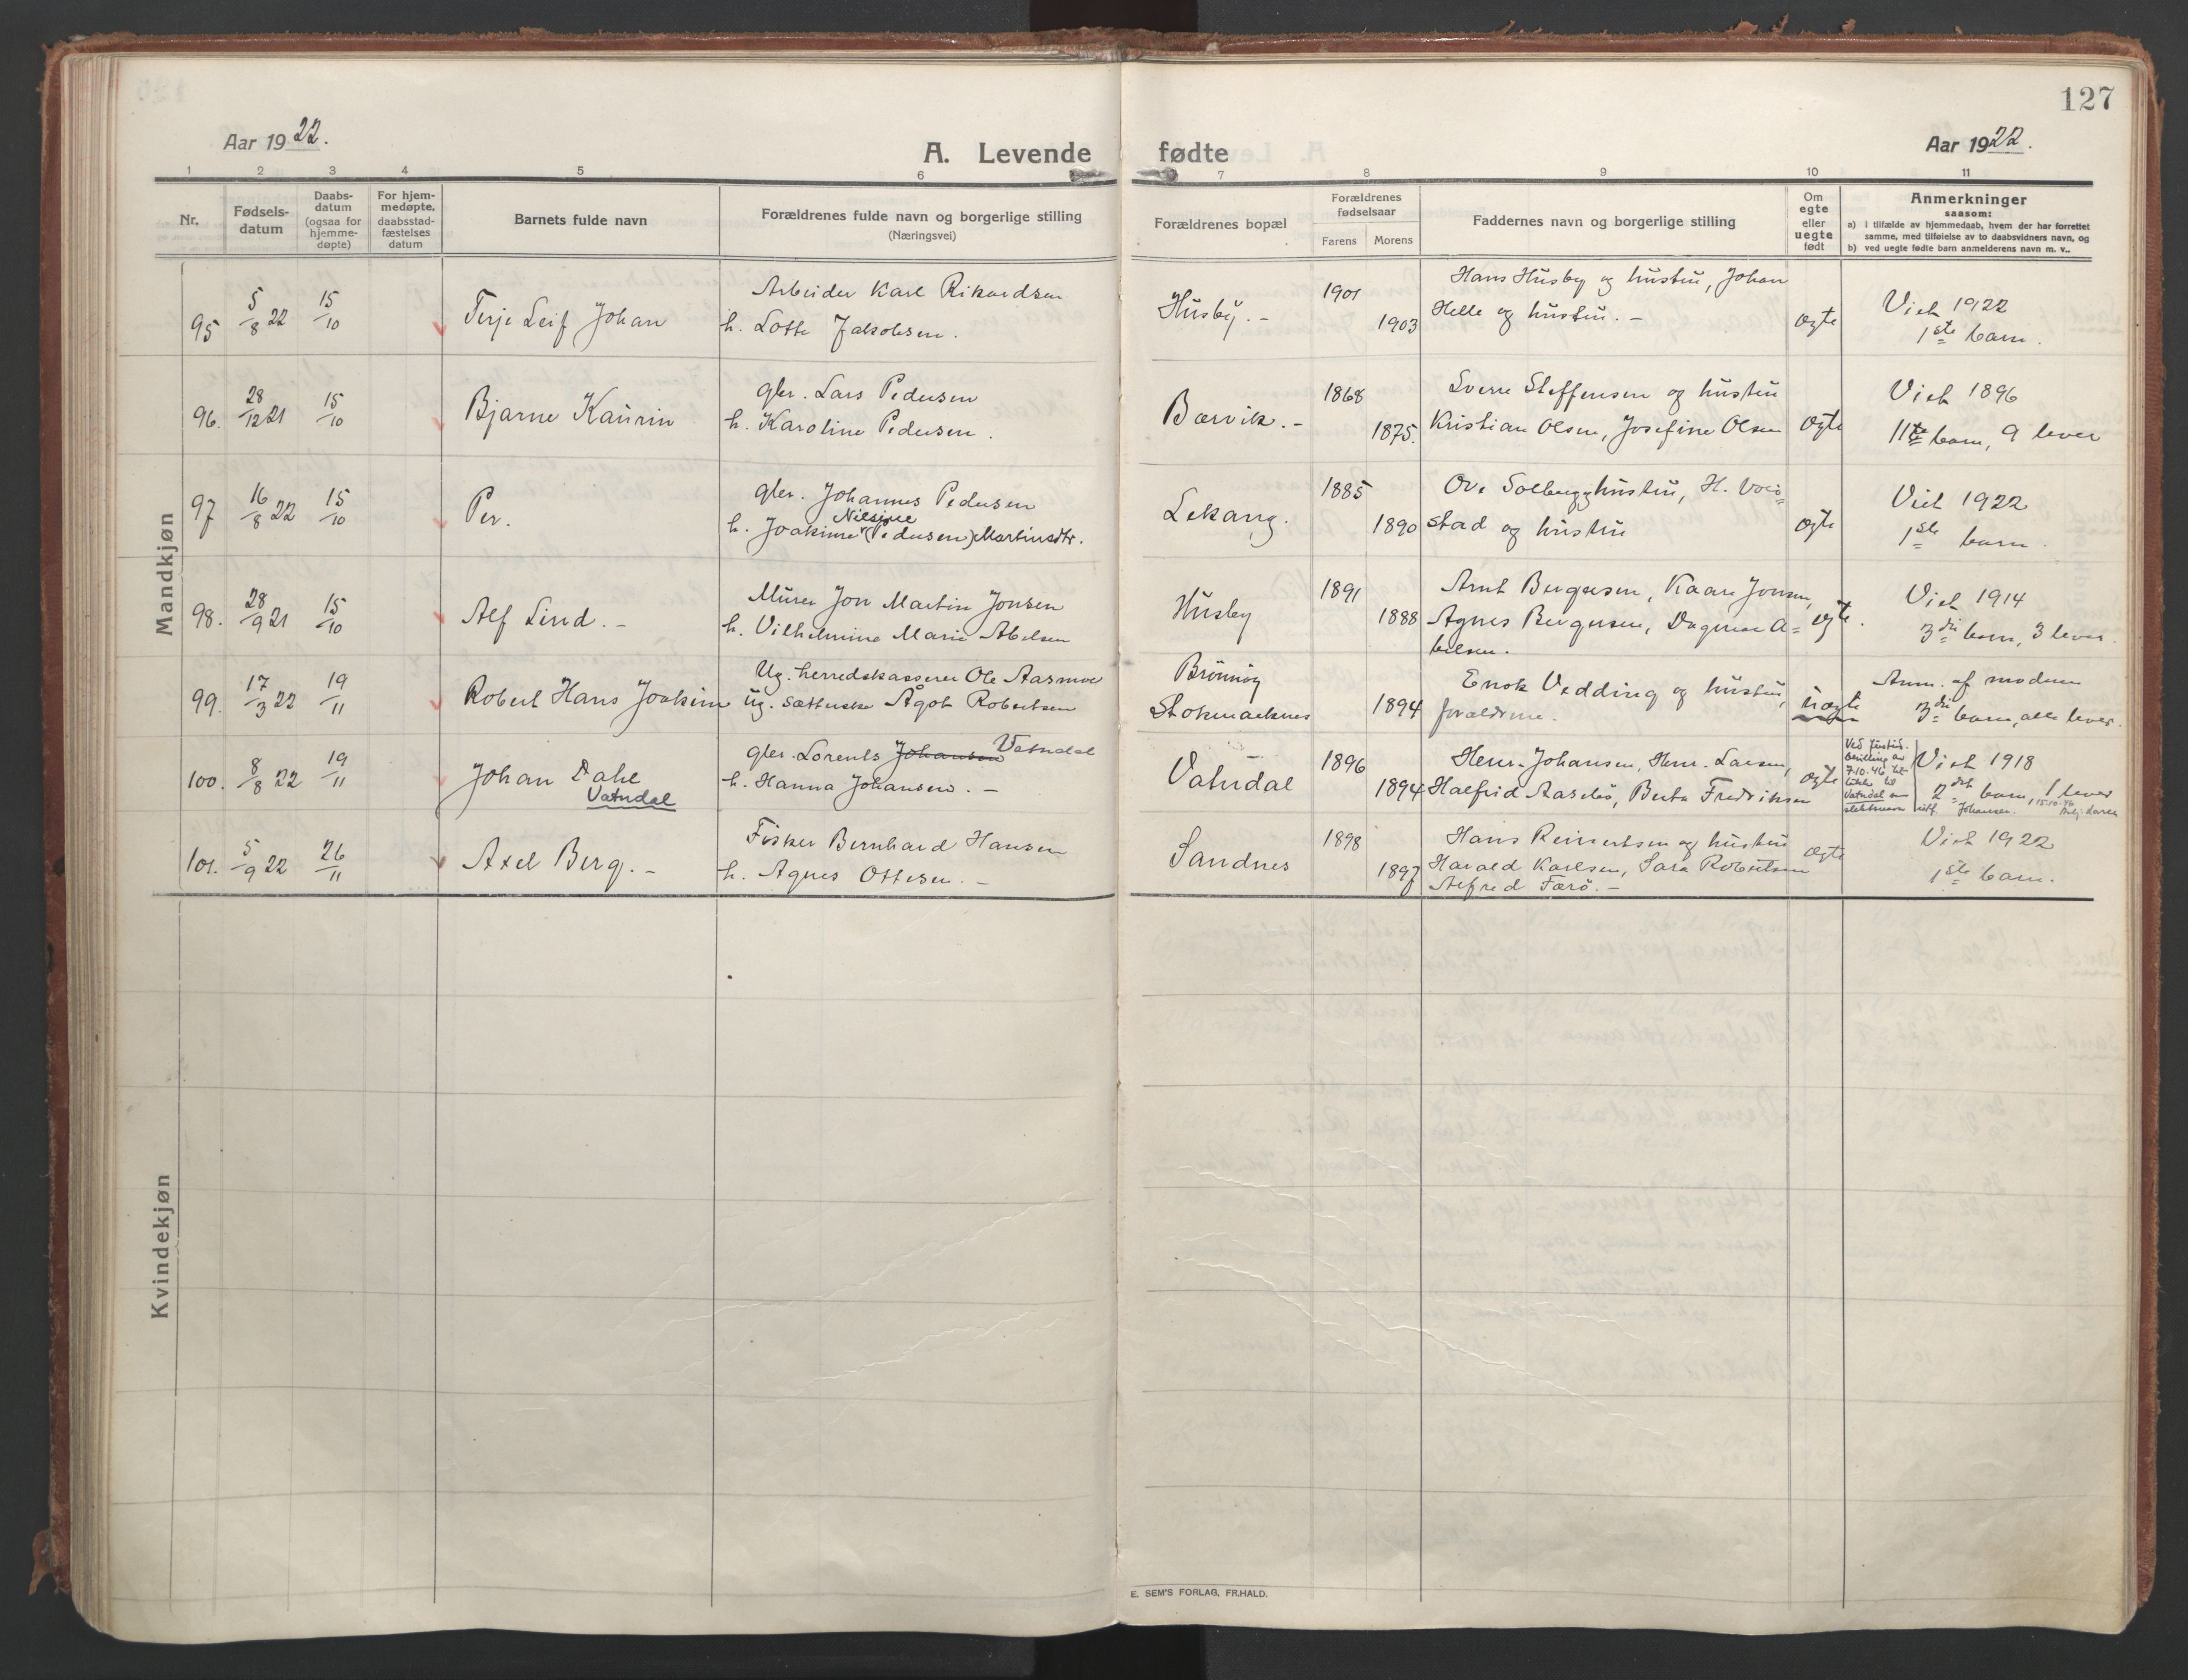 127
Aar 1922.
A. Levende fødte
Aar 1922.
1 2 3 4 5 6 7 8 9 10 11
Nr.
Fødsels-
datum
Daabs-
datum
(ogsaa for
hjemme-
døpte)
For hjem-
medøpte,
daabsstad-
fæstelses
datum
Barnets fulde navn
Forældrenes fulde navn og borgerlige stilling
(Næringsvei)
Forældrenes bopæl
Forældrenes
fødselsaar
Farens Morens
Faddernes navn og borgerlige stilling
Om
egte
eller
uegte
født
Anmerkninger
saasom:
a) i tilfælde av hjemmedaab, hvem der har forrettet
samme, med tilføielse av to daabsvidners navn, og
b) ved uegte fødte barn anmelderens navn m. v..
Mandkjøn
95 5/8 22 15/10 Terje Leif Johan
Arbeider Karl Rikardsen
h. Lotte Jakobsen.
Husby. -
1901
1903
Hans Husby og hustru, Johan
Helle og hustru. -
ægte
Viet 1922
1ste barn.
96. 28/12 21 15/10 Bjarne Kaurin
gbr. Lars Pedersen
h. Karoline Pedersen.
Bærvik. -
1868
1875.
Sverre Steffensen og hustru
Kristian Olsen, Josefine Olsen
ægte
Viet 1896
11te barn, 9 lever
97 16/8 22 15/10 Per.
gbr. Johannes Pedersen
Nilsine
h. Joakime (Pedersen) Martinsdtr.
Lekang.
1885
1890
Ove Solberg og hustru, H. Voie=
stad og hustru
ægte
Viet 1922
1ste barn.
98. 28/9 21 15/10 Alf Lind. -
Murer Jon Martin Jonsen
h. Vilhelmine Marie Abelsen
Husby
1891
1888
Arnt Bergersen, Kaare Jonsen,
Agnes Bergersen, Dagmar A=
belsen.
ægte.
Viet 1914
3die barn, 3 lever.
99. 17/3 22 19/11 Robert Hans Joakim
Ug. herredskasserer Ole Aasmoe
ug. Ågot Robertsen
Brønnøy
Stokmarknes
1894
Enok Vedding og hustru,
forældrene.
uægte
Anm. af moderen
3die barn, alle lever.
100. 8/8 22 19/11 Johan Dahl
Vatndal
gbr. Lorents Johansen Vatndal
h. Hanna Johansen. -
Vatndal
1896
1894
Henr. Johansen, Henr. Larsen,
Halfrid Aasebø, Berta Fredriksen
ægte
7-10-46
Vatndal
slektsnavn
Viet 1918
2det barn, 1 lever
Johansen. 15.10.46
101. 5/9 22 26/11 Axel Berg. -
Fisker Bernhard Hansen
h. Agnes Ottesen. -
Sandnes
1898
1897
Hans Reinertsen og hustru
Harald Karlsen, Sara Robertsen
Alfred Færø. -
ægte
Viet 1922
1ste barn.
Kvindekjøn
E. SEM'S FORLAG, FR.HALD.